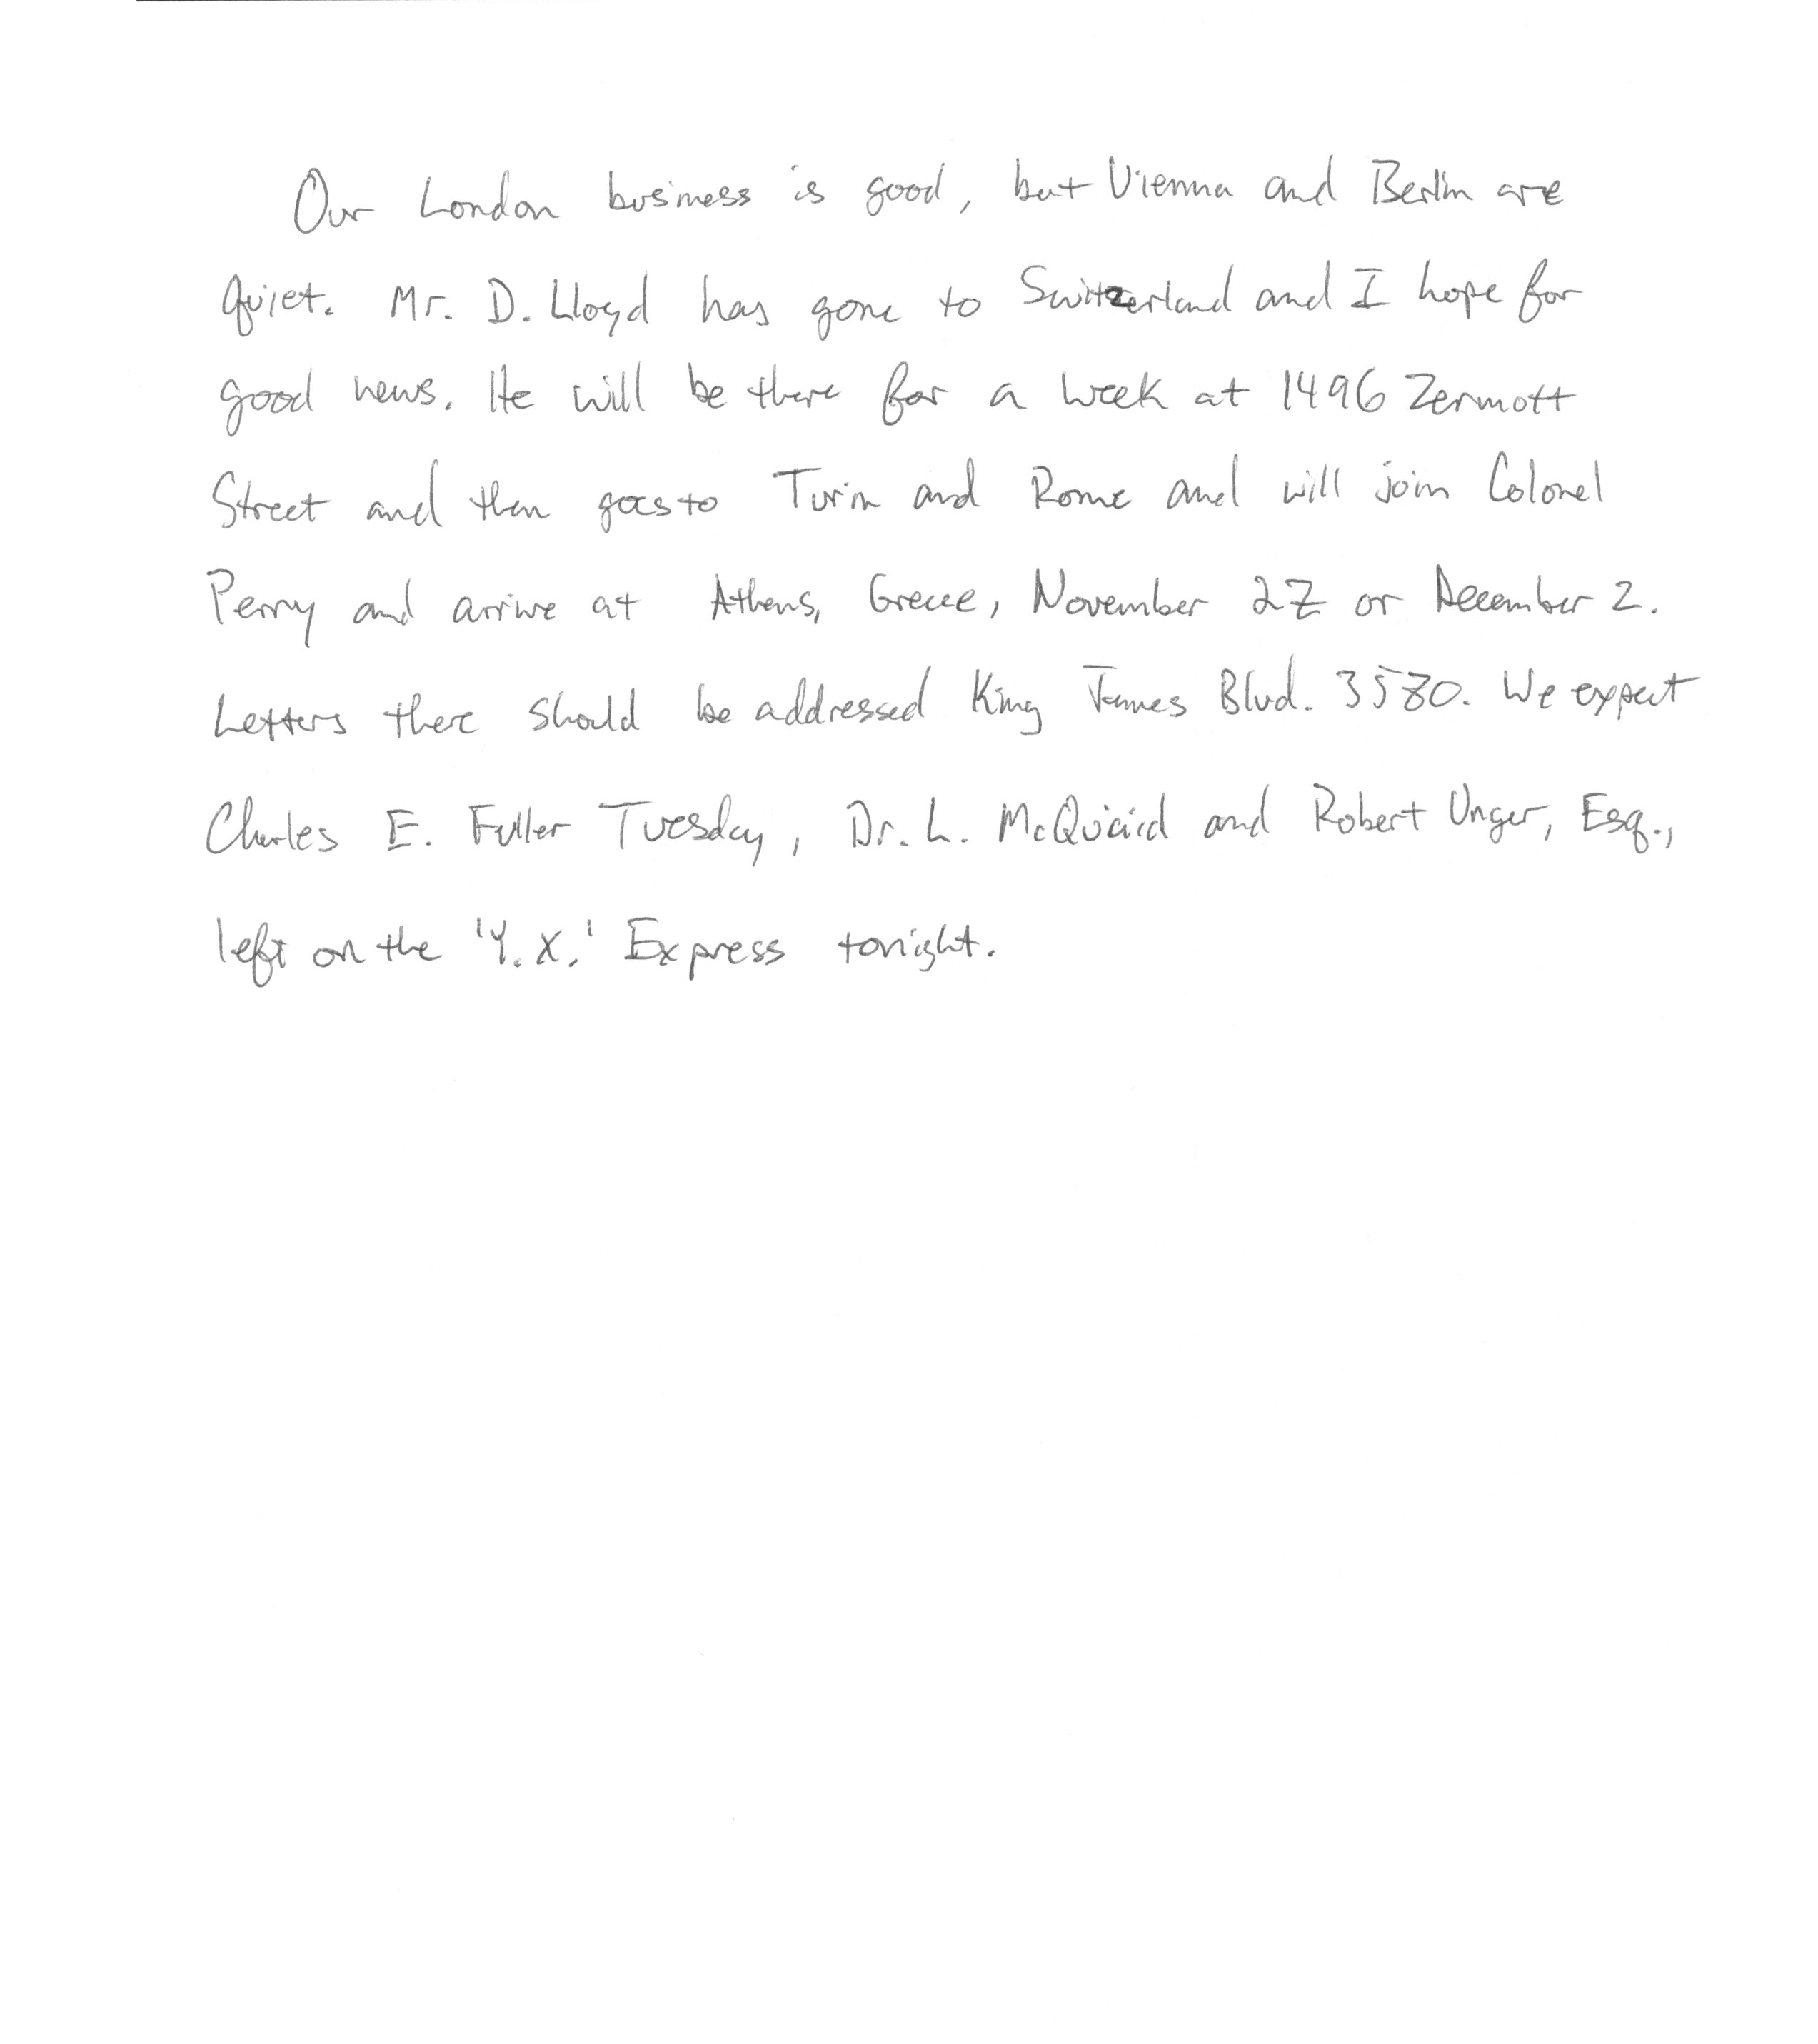 Our London business is good, but Vienna and Berlin are
quiet. Mr. D. Lloyd has gone to Switzerland and I hope for
good news. He will be there for a week at 1496 Zermott
Street and then goes to Turin and Rome and will join Colonel
Perry and arrive at Athens, Greece, November 27 or December 2.
Letters there should be addressed King James Blvd. 3580. We expect
Charles E. Fuller Tuesday, Dr. L. McQuaid and Robert Unger, Esq.,
left on the 'Y.X.' Express tonight.